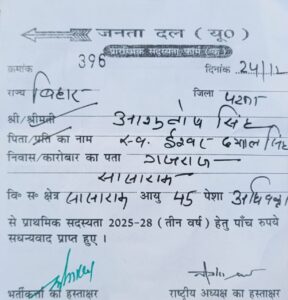 जनता दल (यू०)
प्राथमिक सदस्यता फार्म (क)
क्रमांक 396 दिनांक 24/12
राज्य बिहार जिला पटना
श्री/श्रीमती आशुतोष सिंह
पिता/पति का नाम स्व. ईश्वर दयाल सिंह
निवास/कारोबार का पता गजराज
सासाराम
वि० स० क्षेत्र सासाराम आयु 45 पेशा अधिवक्ता
से प्राथमिक सदस्यता 2025-28 (तीन वर्ष) हेतु पाँच रुपये
सधन्यवाद प्राप्त हुए ।
भर्तीकर्ता का हस्ताक्षर राष्ट्रीय अध्यक्ष का हस्ताक्षर